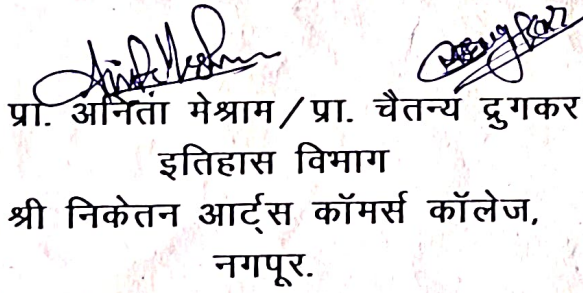 प्रा. अनिता मेश्राम / प्रा. चैतन्य द्रुगकर
इतिहास विभाग
श्री निकेतन आर्ट्स कॉमर्स कॉलेज,
नगपूर.